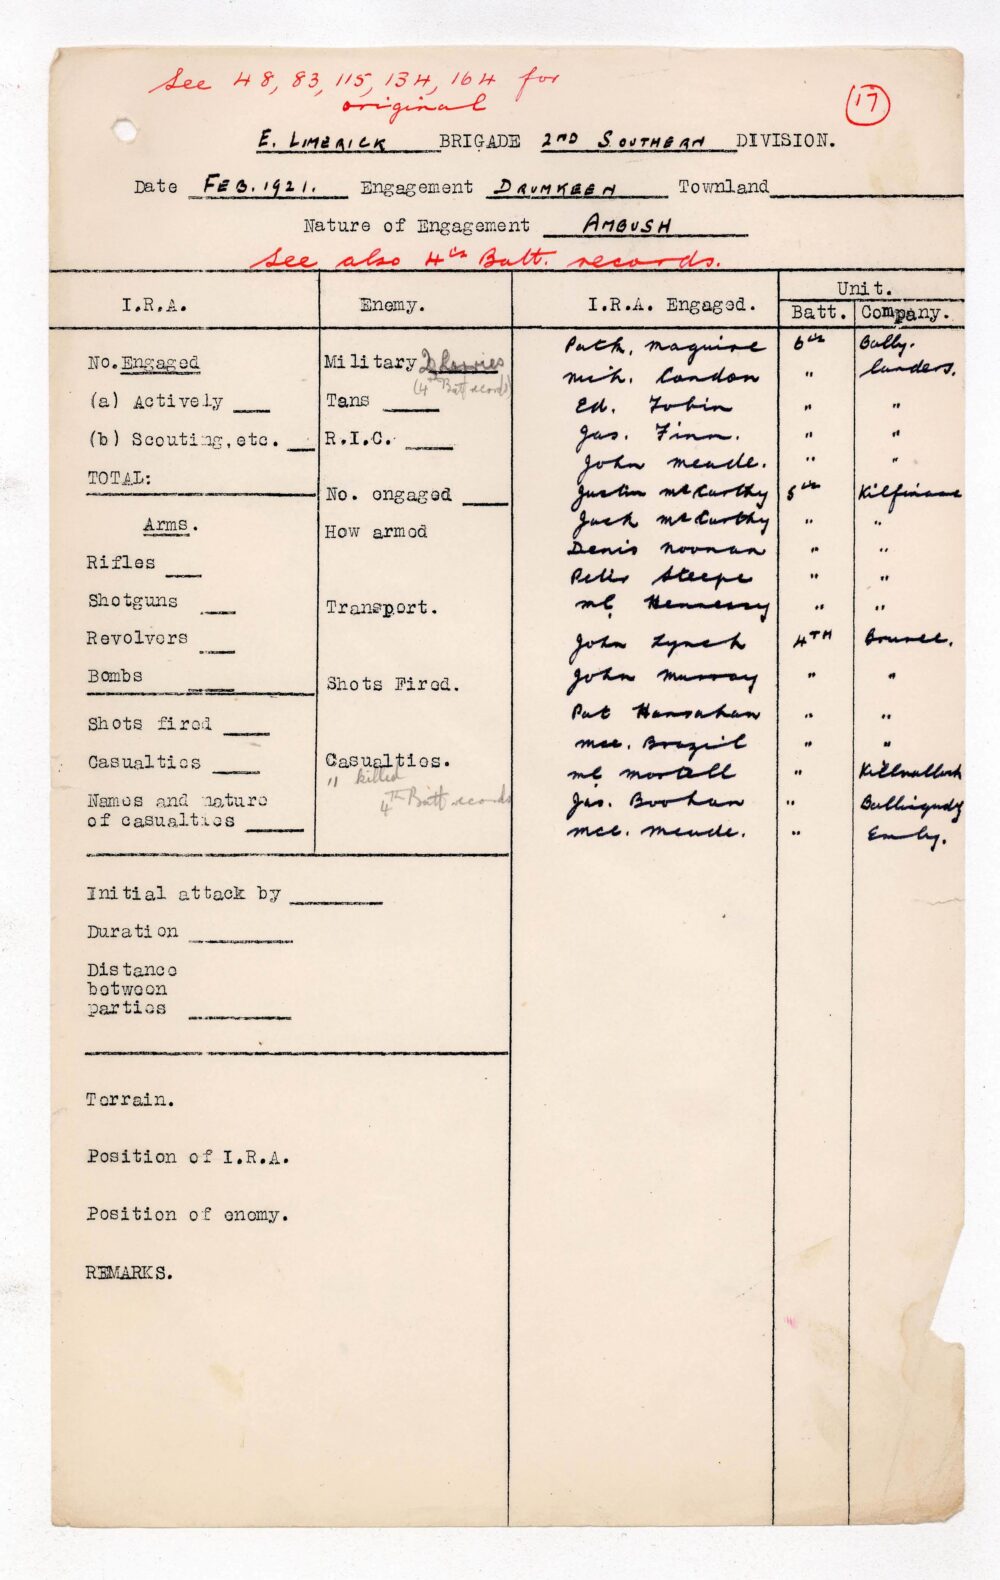 See 48, 83, 115, 134, 164 for
original
17
E. LIMERICK BRIGADE 2ND SOUTHERN DIVISION.
Date FEB. 1921. Engagement DRUMKEEN Townland
Nature of Engagement AMBUSH
See also 4th Batt. records.
I.R.A. Enemy. I.R.A. Engaged. Unit.
Batt. Company.
No. Engaged
(a) Actively
(b) Scouting, etc.
TOTAL:
Arms.
Rifles
Shotguns
Revolvers
Bombs
Shots fired
Casualties
Names and nature
of casualties
Military 2 Lorries
(4th Batt records)
Tans
R.I.C.
No. engaged
How armed
Transport.
Shots Fired.
Casualties.
" killed
4TH Batt records
Patk. Maguire 6th Bally.
Mich. Condon " landers.
Ed. Tobin " "
Jas. Finn. " "
John Meade. " "
Justin McCarthy 5th Kilfinane
Jack McCarthy " "
Denis Noonan " "
Peter Steepe " "
Ml Hennessy " "
John Lynch 4TH Bruree.
John Murray " "
Pat Hanrahan " "
Mce. Brazil " "
Ml Mortell " Killmallock
Jas. Boohan " Ballingady
Mce. Meade. " Emly.
Initial attack by
Duration
Distance
between
parties
Terrain.
Position of I.R.A.
Position of enemy.
REMARKS.